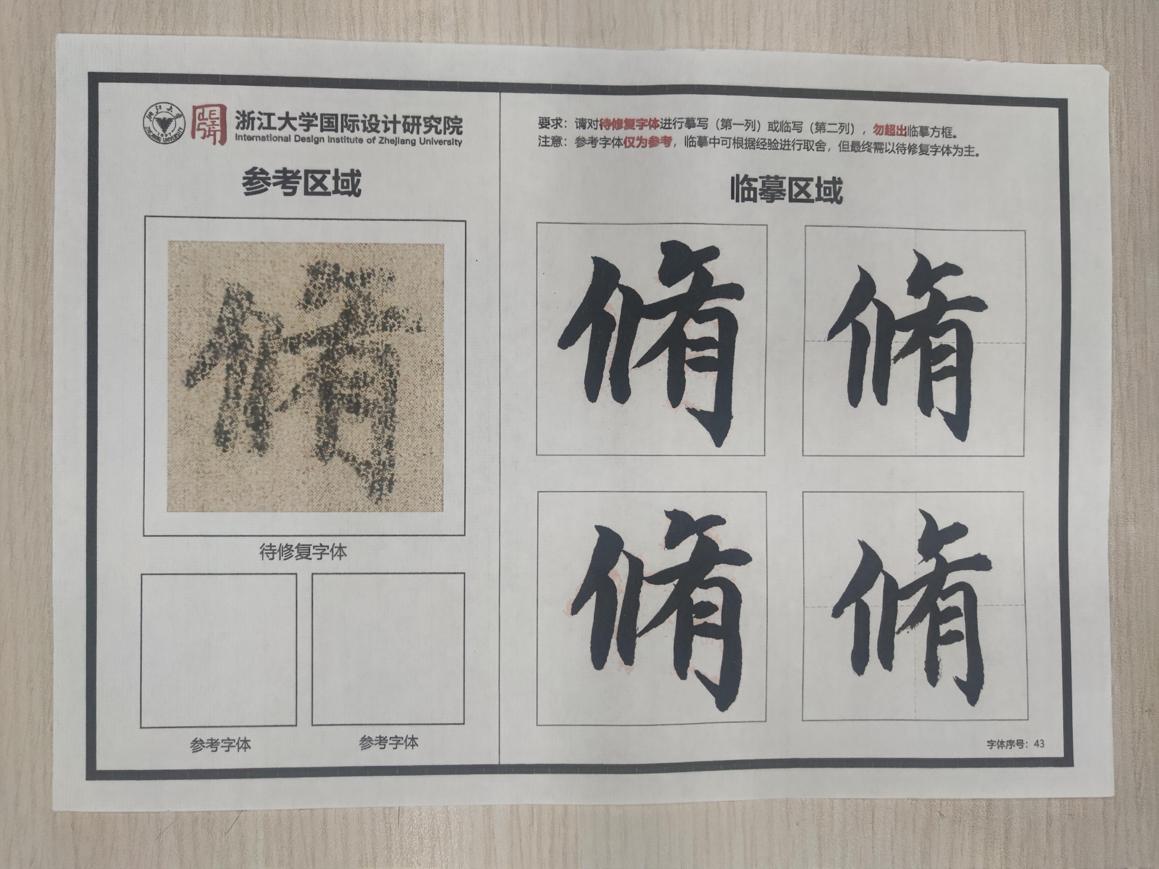 浙江大学国际设计研究院
International Design Institute of Zhejiang University
参考区域
脩
待修复字体
参考字体 参考字体
要求：请对待修复字体进行摹写（第一列）或临写（第二列），勿超出临摹方框。
注意：参考字体仅为参考，临摹中可根据经验进行取舍，但最终需以待修复字体为主。
临摹区域
脩 脩
脩 脩
字体序号：43